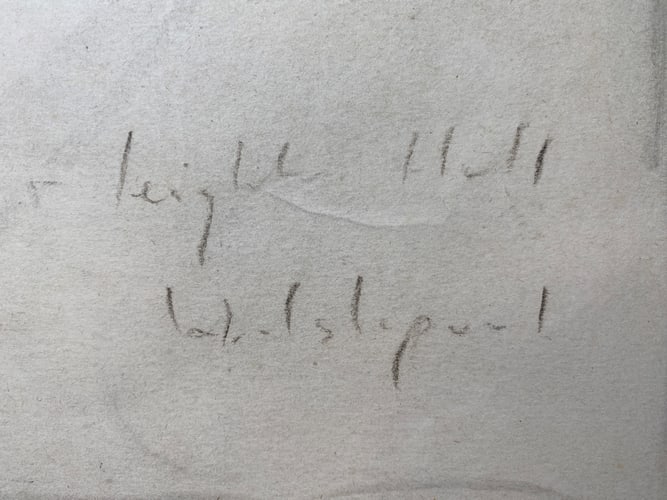 Leighton Hall
Welshpool